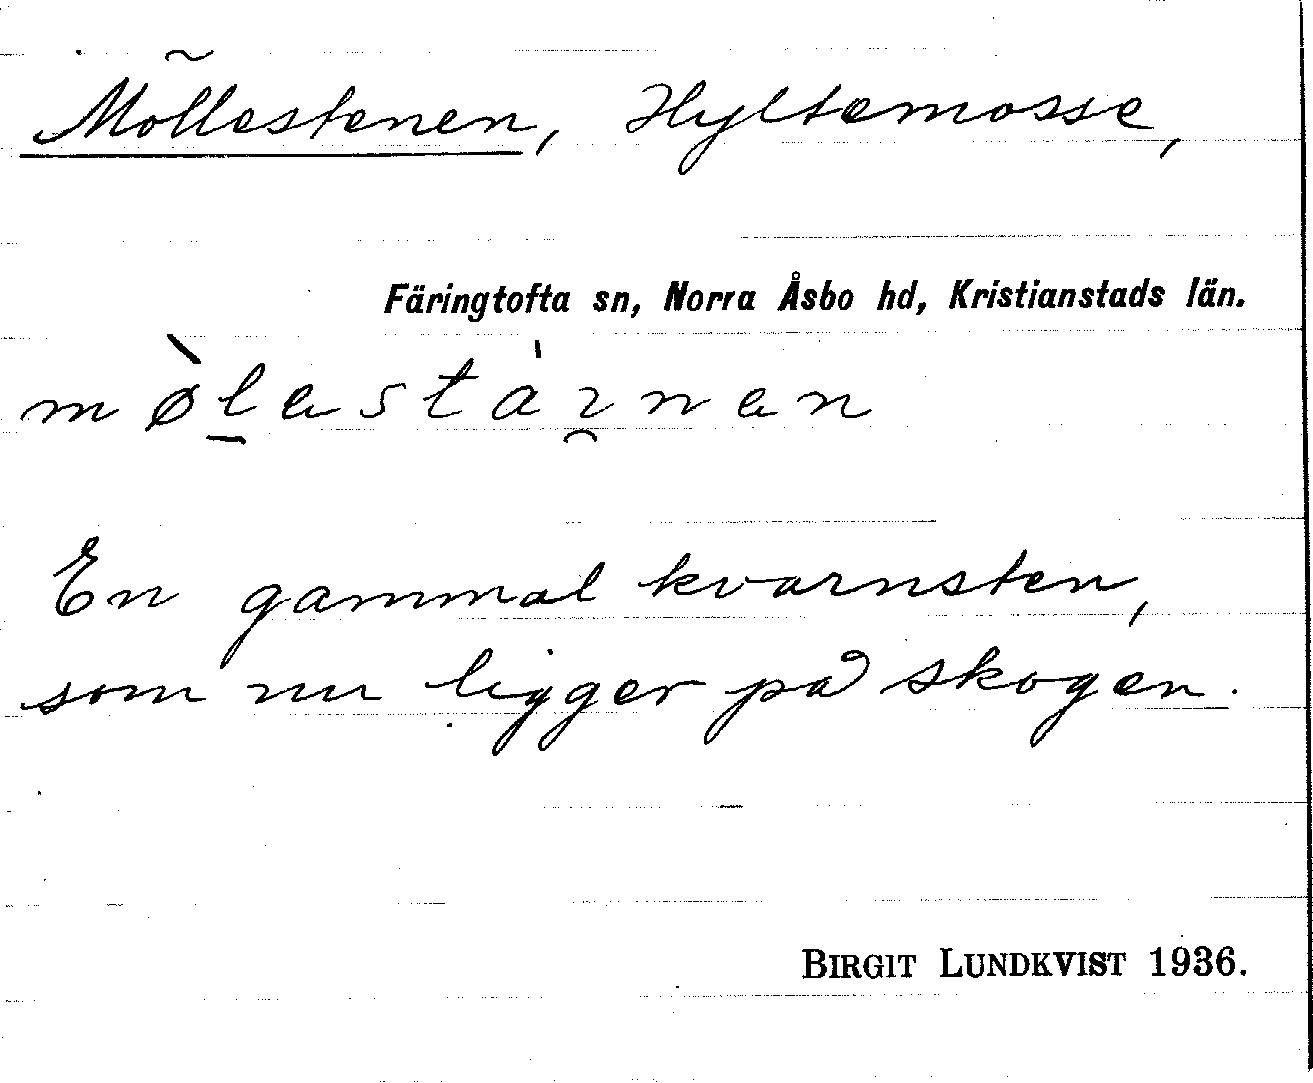 Möllestenen, Hyltemosse,
Färingtofta sn, Norra Åsbo hd, Kristianstads län.
mø̀l̠astáı̯nan
En gammal kvarnsten,
som nu ligger på skogen.
BIRGIT LUNDKVIST 1936.